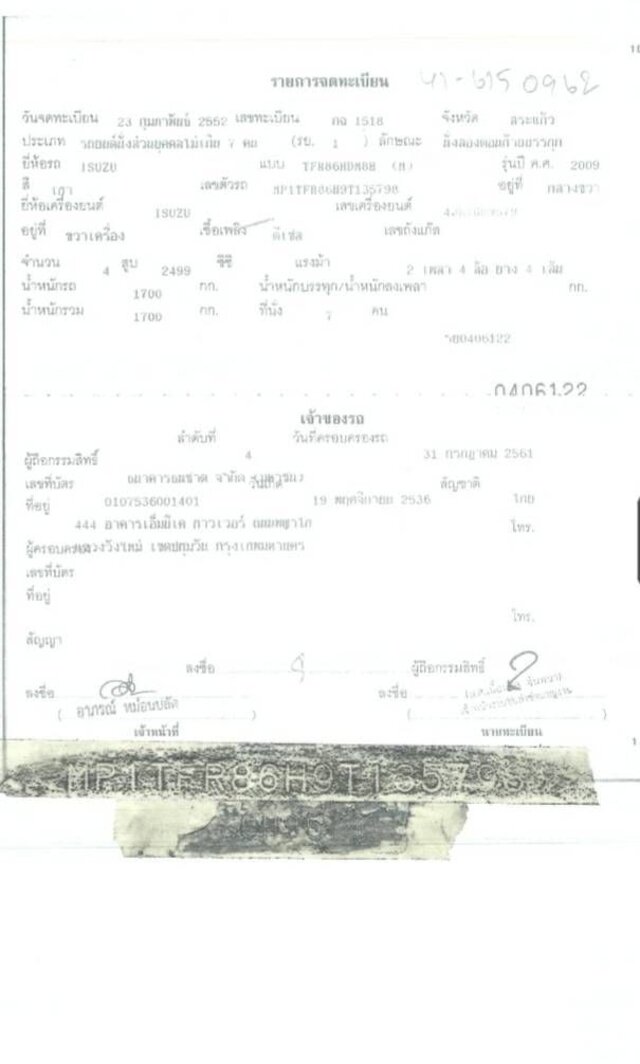 10
รายการจดทะเบียน
วันจดทะเบียน 23 กุมภาพันธ์ 2552 เลขทะเบียน กฉ 1518 จังหวัด สระแก้ว
ประเภท รถยนต์นั่งส่วนบุคคลไม่เกิน 7 คน (รย. 1 ) ลักษณะ
ยี่ห้อรถ ISUZU แบบ TFR86HDM8B (M) รุ่นปี ค.ศ. 2009
สี เทา เลขตัวรถ MP1TFR86H9T135798 อยู่ที่ กลางขวา
ยี่ห้อเครื่องยนต์ ISUZU เลขเครื่องยนต์
อยู่ที่ ขวาเครื่อง เชื้อเพลิง ดีเซล เลขถังแก๊ส
จำนวน 4 สูบ 2499 ซีซี แรงม้า 2 เพลา 4 ล้อ ยาง 4 เส้น
น้ำหนักรถ 1700 กก. น้ำหนักบรรทุก/น้ำหนักลงเพลา กก.
น้ำหนักรวม 1700 กก. ที่นั่ง 7 คน
0406122
0406122
เจ้าของรถ
ลำดับที่ 4 วันที่ครอบครองรถ 31 กรกฎาคม 2561
ผู้ถือกรรมสิทธิ์ ธนาคารธนชาต จำกัด (มหาชน)
เลขที่บัตร 0107536001401 วันเกิด 19 พฤศจิกายน 2536 สัญชาติ ไทย
ที่อยู่ 444 อาคารเอ็มบีเค ทาวเวอร์ ถนนพญาไท โทร.
แขวงวังใหม่ เขตปทุมวัน กรุงเทพมหานคร
ผู้ครอบครอง
เลขที่บัตร
ที่อยู่
โทร.
สัญญา
ลงชื่อ ผู้ถือกรรมสิทธิ์
ลงชื่อ ลงชื่อ
( อาภรณ์ หม่อนปลัด ) ( )
เจ้าหน้าที่ นายทะเบียน
MP1TFR86H9T135798